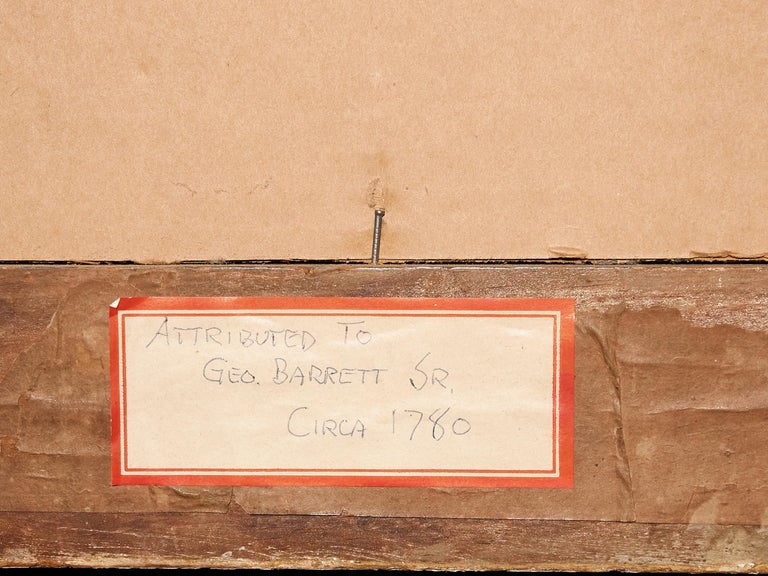 ATTRIBUTED TO
GEO. BARRETT SR.
CIRCA 1780